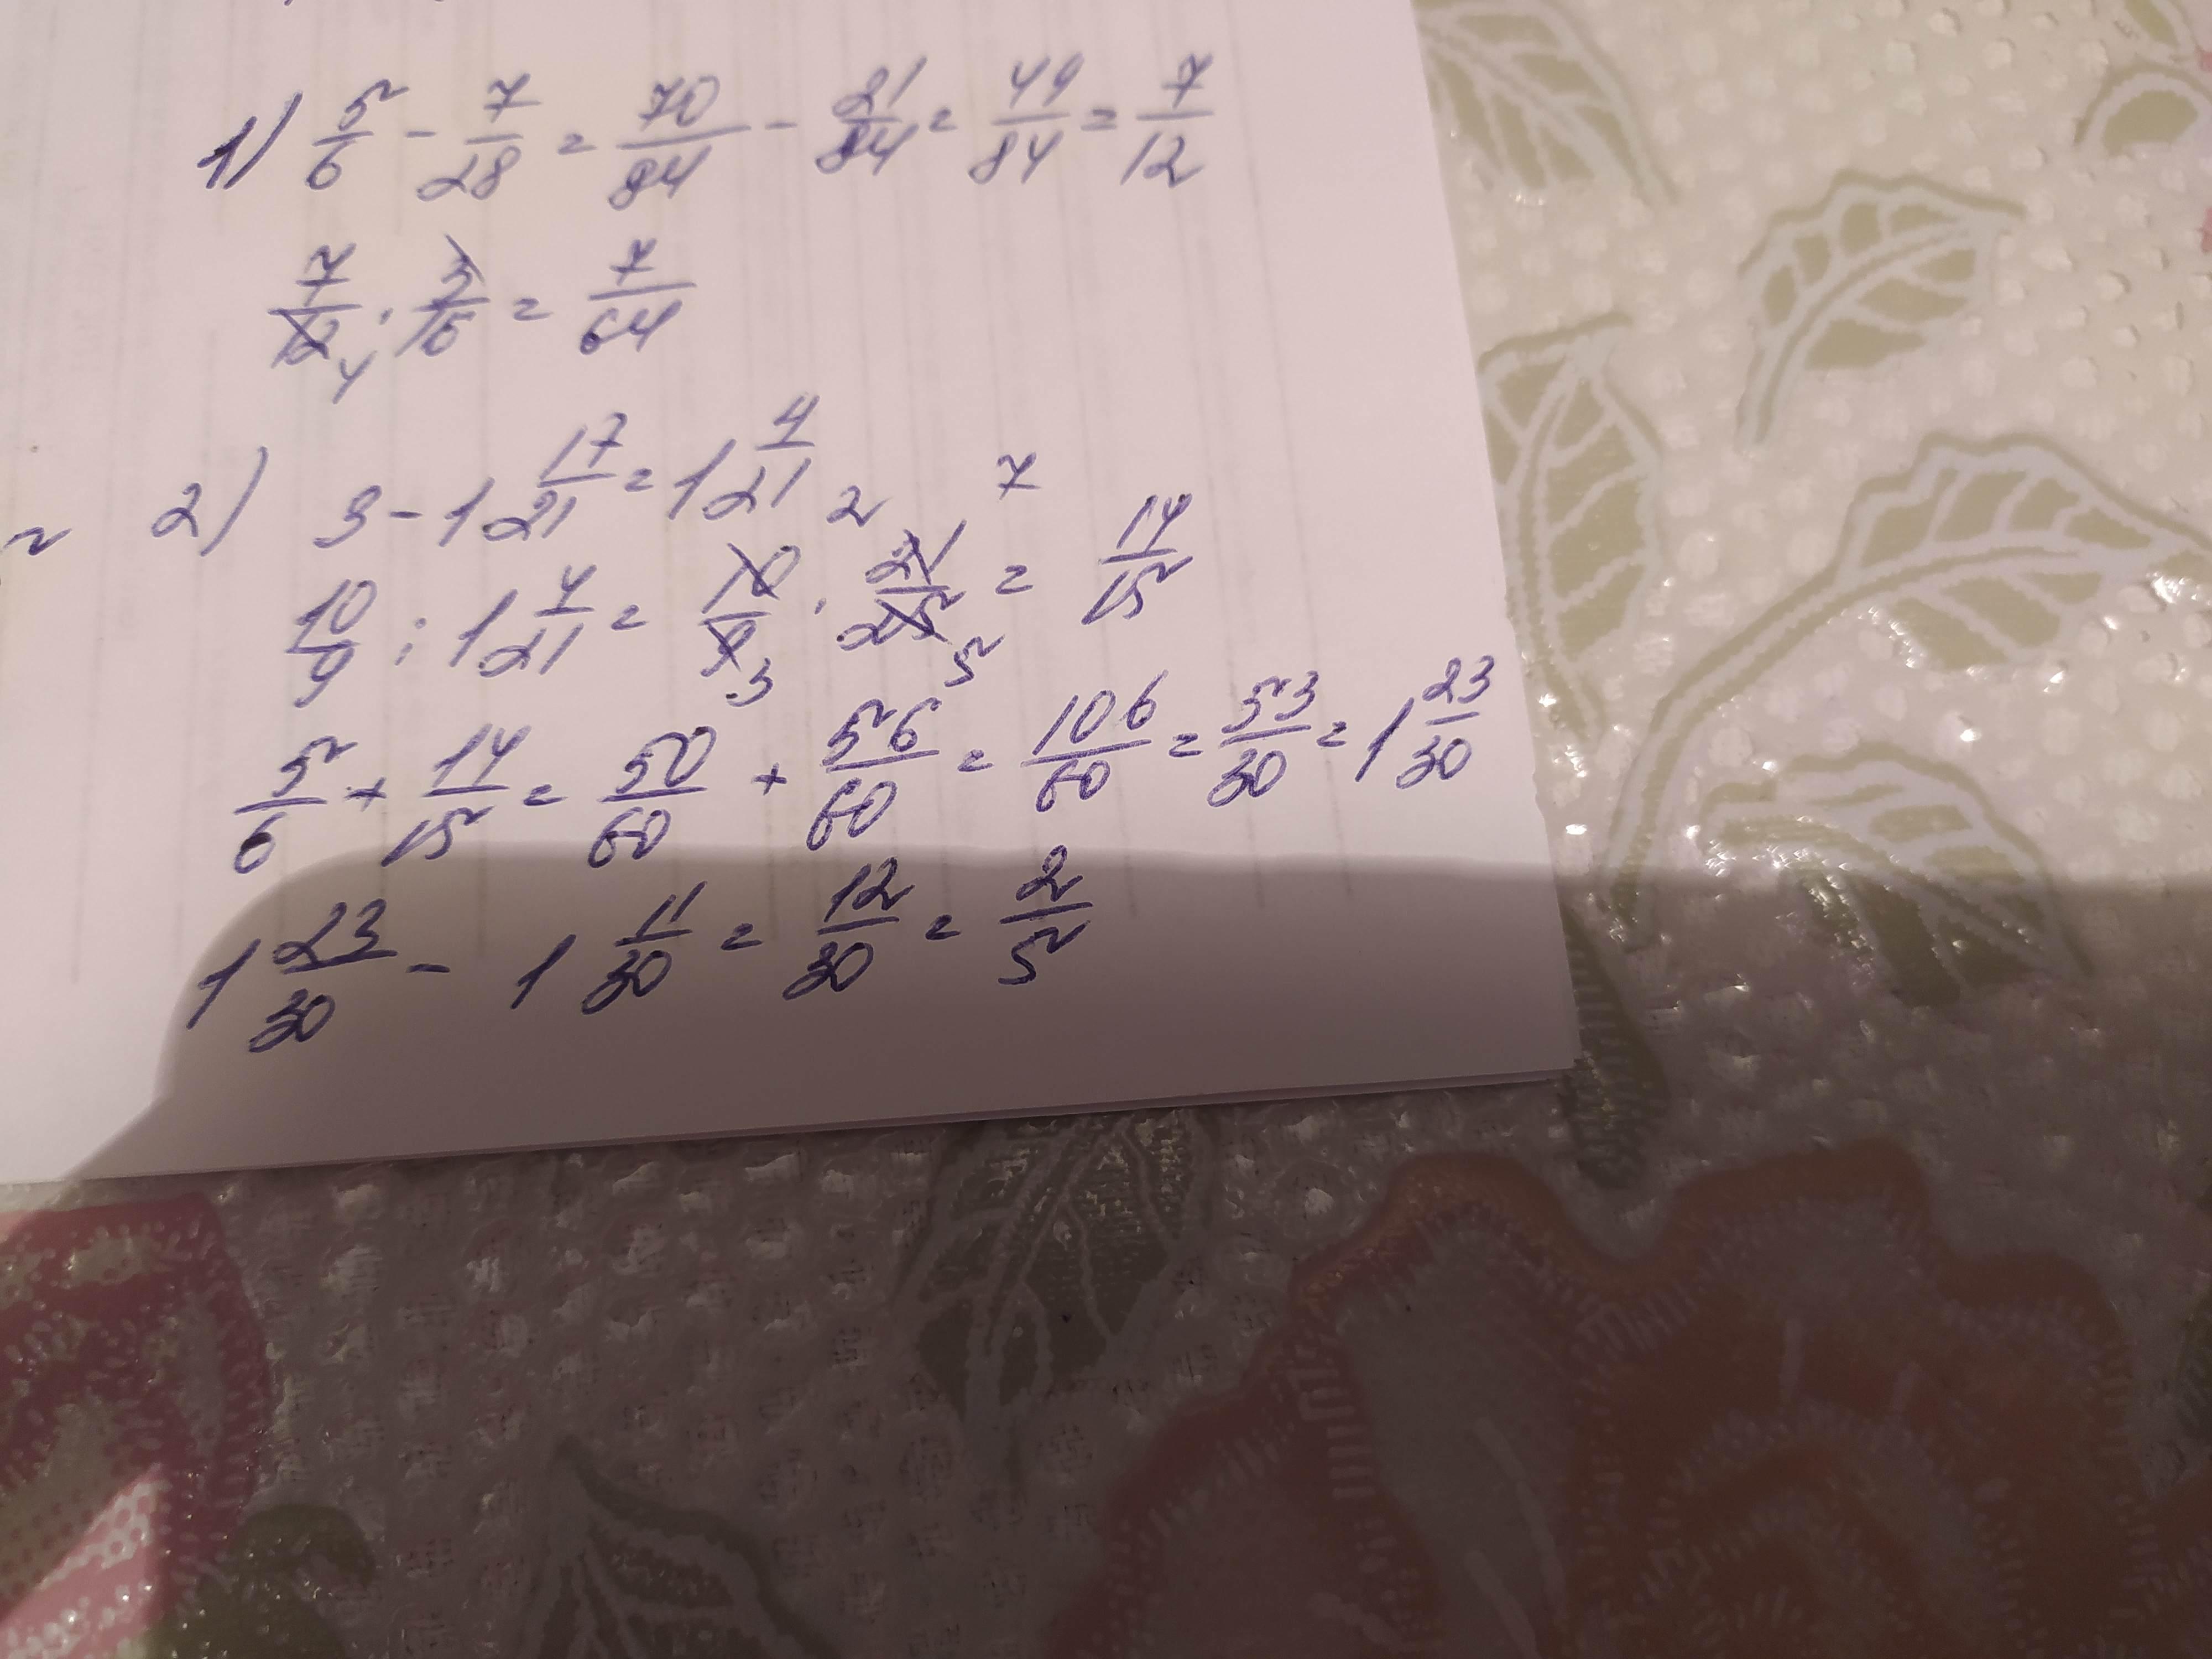 1) 5/6 - 7/28 = 70/84 - 21/84 = 49/84 = 7/12
7/12 4 · 3/16 = 7/64
2) 3 - 1 17/21 = 1 4/21
10/9 : 1 4/21 = 10/9 2 3 · 21/25 7 5 = 14/15
5/6 + 14/15 = 50/60 + 56/60 = 106/60 = 53/30 = 1 23/30
1 23/30 - 1 11/30 = 12/30 = 2/5